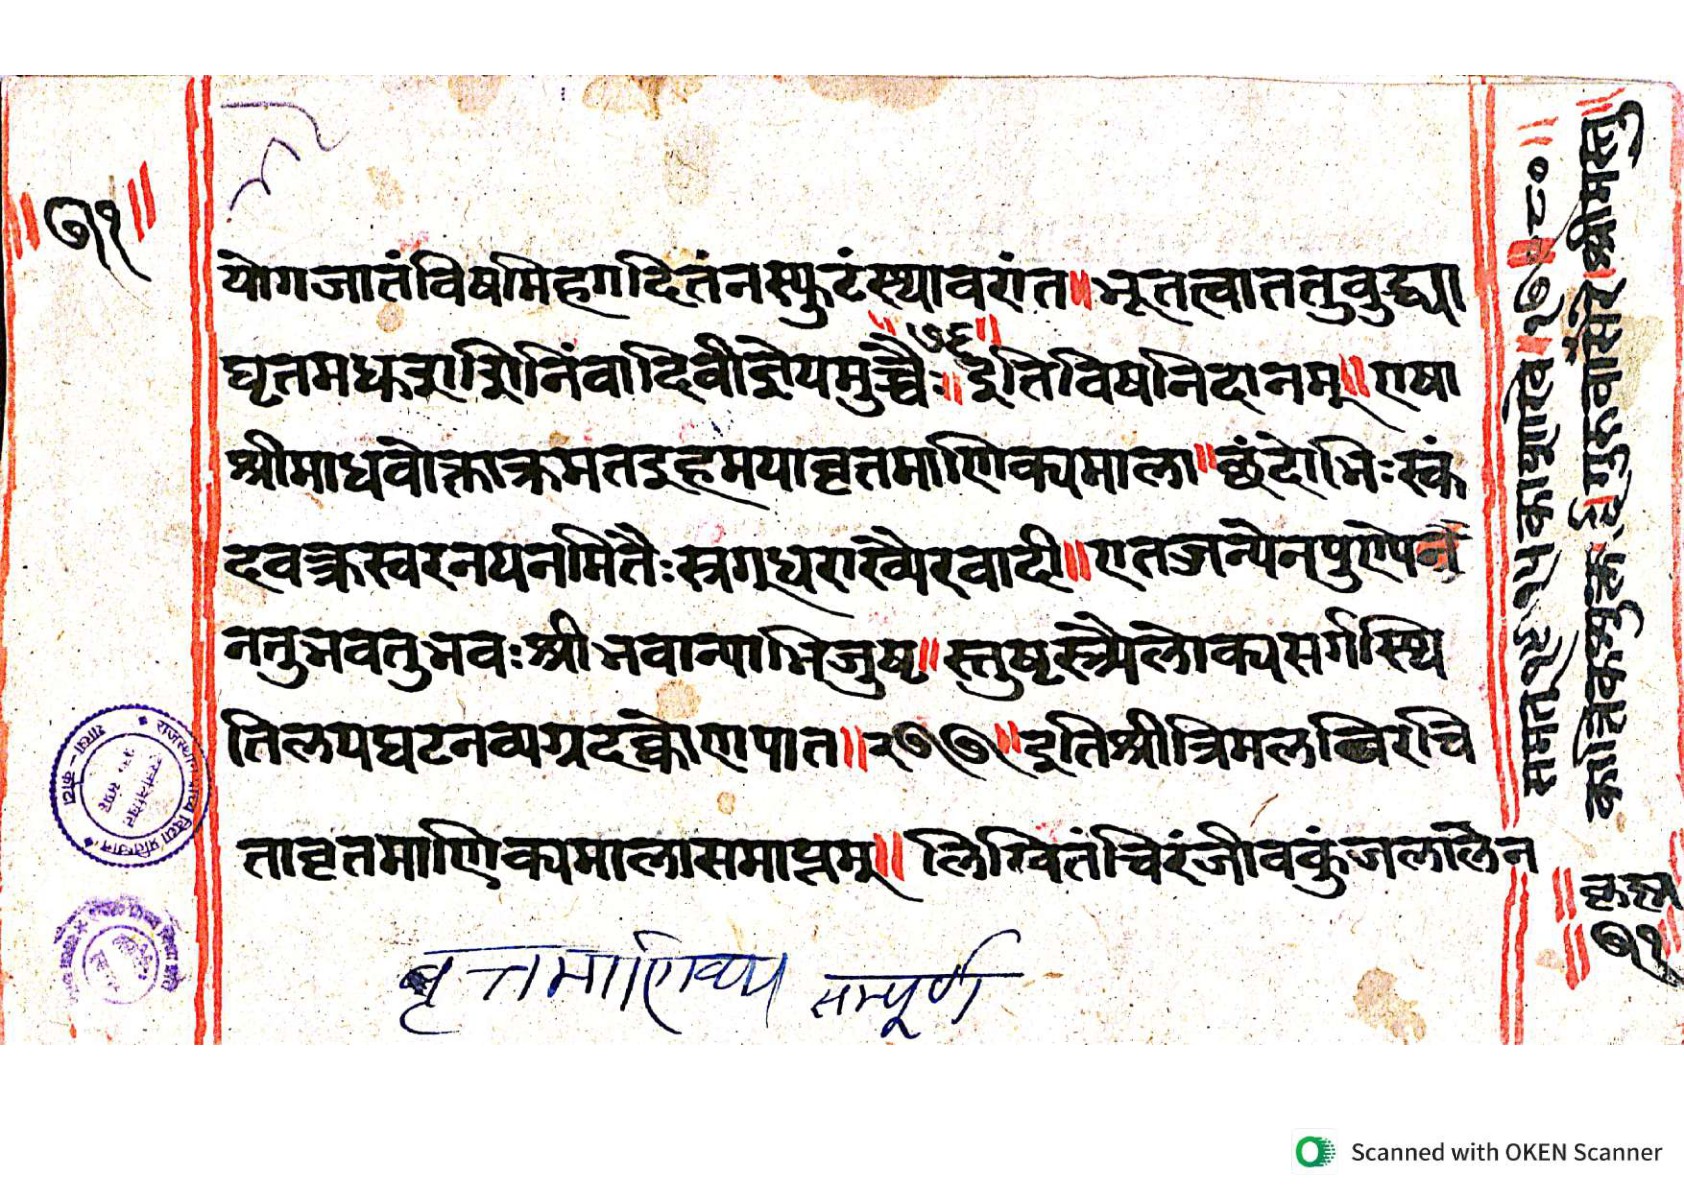 ॥७१॥
योगजातंविषमिहगदितंनस्फुटंस्थावरांत॥भूतत्वाततुवुद्ध्या
॥७६॥
घृतमधुरुराशिनिंवादिवीज्ञेयमुच्चैः॥इतिविषनिदानम्॥एषा
श्रीमाधवोक्ताक्रमतइहमयावृतमाणिक्यमाला॥छंदोभिःस्कं
दवक्रस्वरनयनमितैःस्रग्धराख्यैरवादी॥एतजन्येनपुण्येन
ननुभवतुभवःश्रीभवान्याभिजुष्ट॥स्तुष्टस्त्रैलोक्यसर्गस्थि
तिलयघटनव्यग्रदक्कोणपात॥२७७॥इतिश्रीत्रिमलविरचि
तावृतमाणिक्यमालासमाप्तम्॥लिखितंचिरंजीवकुंजलालेन
वृत्तमाणिक्य सम्पूर्ण
शाके॥१७॥८०॥
कार्त्तिकशुक्ल ८ गुरुवासरे॥श्रीमस्तु॥
॥७१॥
राजस्थान प्राच्य विद्या प्रतिष्ठान
शाखा - कोटा
Scanned with OKEN Scanner